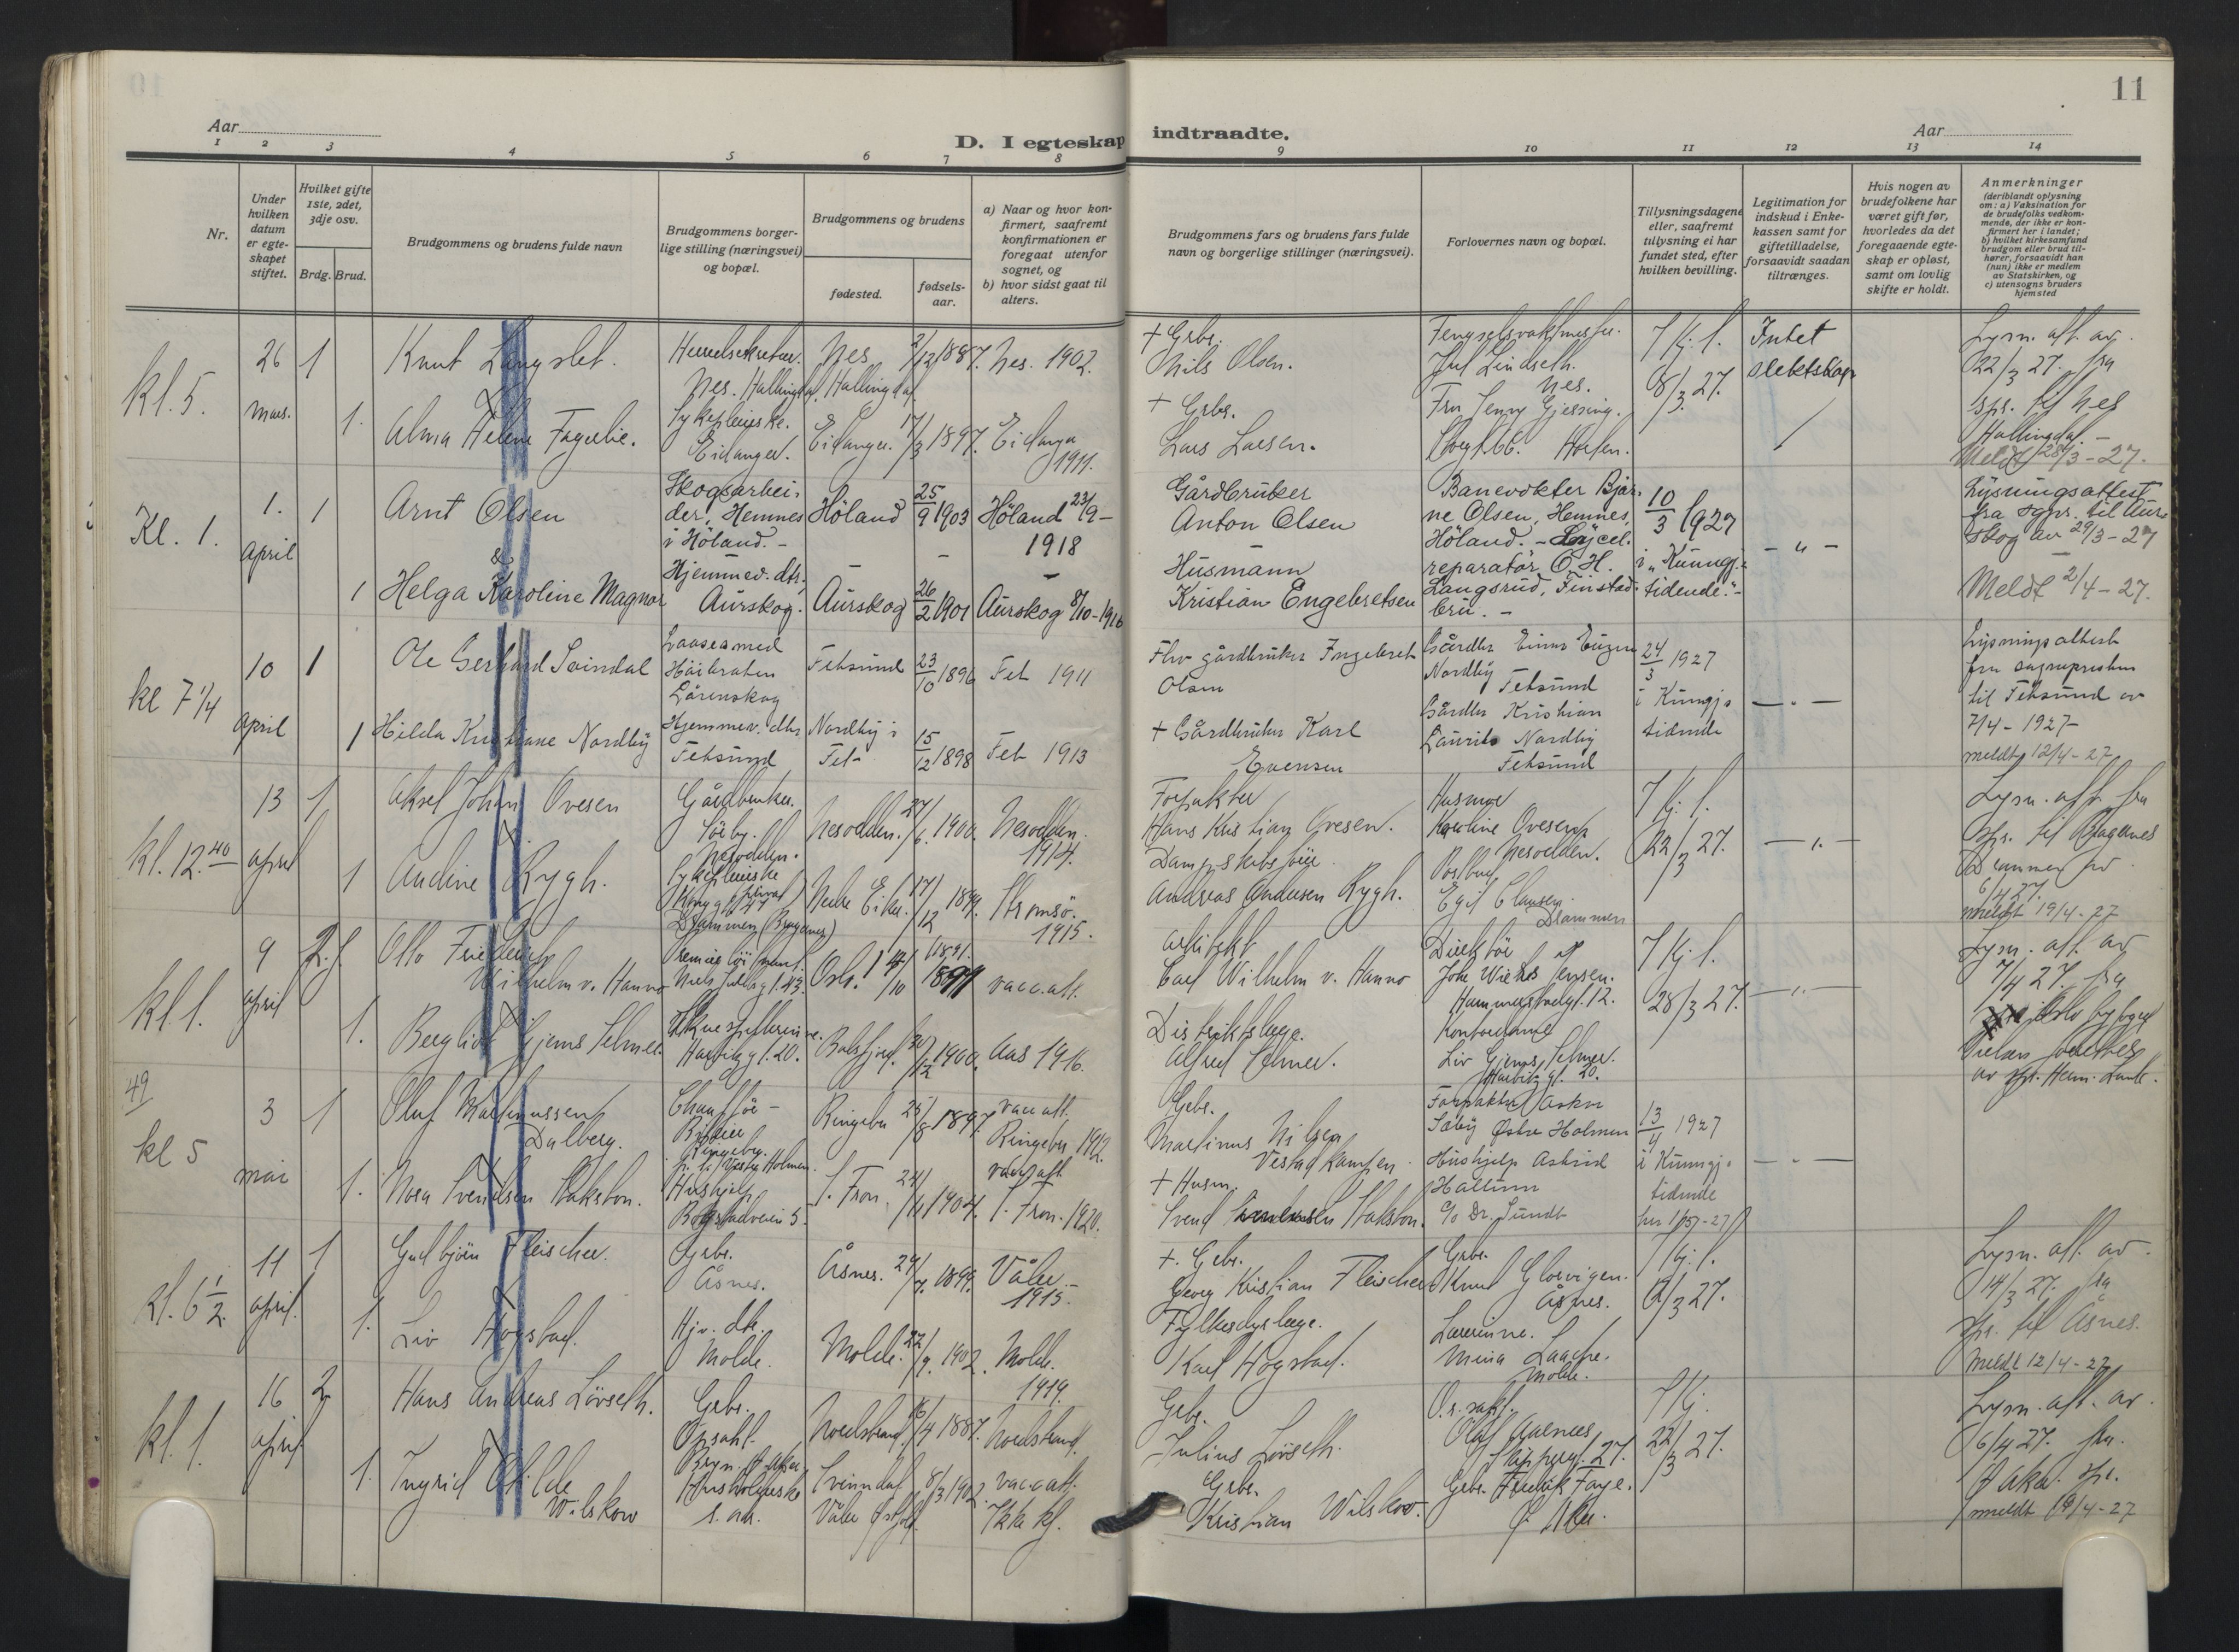 11
Aar
D. I egteskap indtraadte.
Aar
1 2 3 4 5 6 7 8 9 10 11 12 13 14
Nr.
Under hvilken datum er egteskapet stiftet.
Hvilket gifte 1ste, 2det, 3dje osv.
Brdg. Brud.
Brudgommens og brudens fulde navn
Brudgommens borgerlige stilling (næringsvei) og bopæl.
Brudgommens og brudens
fødested.
fødselsaar.
a) Naar og hvor konfirmert, saafremt konfirmationen er foregaat utenfor sognet, og
b) hvor sidst gaat til alters.
Brudgommens fars og brudens fars fulde navn og borgerlige stillinger (næringsvei).
Forlovernes navn og bopæl.
Tillysningsdagene eller, saafremt tillysning ei har fundet sted, efter hvilken bevilling.
Legitimation for indskud i Enkekassen samt for giftetilladelse, forsaavidt saadan tiltrænges.
Hvis nogen av brudefolkene har været gift før, hvorledes da det foregaaende egteskap er opløst, samt om lovlig skifte er holdt.
Anmerkninger
(deriblandt oplysning om: a) Vaksination for de brudefolks vedkommende, der ikke er konfirmert her i landet;
b) hvilket kirkesamfund brudgom eller brud tilhører, forsaavidt han (hun) ikke er medlem av Statskirken, og
c) utensogns bruders hjemsted
kl. 5.
26 mars.
1
Knut Langslet.
Nes. Hallingdal
Nes Hallingdal
2/12 1887.
Nes. 1902.
+ Grbr.
Nils Olsen.
Fengselsvaktmester
Lindseth.
Nes.
7 Kj. l.
8/3 27.
Intet slektskap
Lysn. att. av
22/3 27. fra
spr. til Nes
Hallingdal. -
Meldt 28/3 - 27.
1.
Alma Helene Fagerlie.
Sykepleierske.
Eidanger.
Eidanger.
17/3 1897.
Eidanger
1911.
+ Grbr.
Lars Larsen.
Fru Jenny Gjessing.
Horten.
Kl. 1.
1. april
1
Arnt Olsen
&
Skogsarbeider, Hemnes
i Höland. -
Höland
25/9 1903
Höland 23/9 -
1918
Gårdbruker
Anton Olsen
Banevokter Bjarne Olsen, Hemnes,
Höland. -
10/3 1927
i "Kunngj.-
tidende".-
- " -
Lysningsattest
fra sgpr. til Aurskog av 29/3 - 27
Meldt 2/4 - 27.
1
Helga Karoline Magnor
Hjemmev. dtr.
Aurskog.
Aurskog
26/2 1901
Aurskog 8/10 - 1916
Husmann
Kristian Engebretsen
Sycel.
reparatör O. H.
Langsrud, Finstadbru. -
kl 7 1/4
10 april
1
Ole Gerhard Soindal
Lørenskog
Fetsund
23/10 1896
Fet 1911
Fhv gårdbruker Ingebret
Olsen
Gårdbr Einar Eugen
Nordby
Fetsund
24/3 1927
i Kungj.
tidende
- " -
Lysningsattest
fra sognepresten
til Fetsund av
7/4 - 1927 -
meldt 12/4 - 27
1
Hilda Kristiane Nordby
Hjemmev. dtr
Fetsund
Nordby i
Fet -
15/12 1898
Fet 1913
+ Gårdbruker Karl
Evensen
Gårdbr Kristian
Laurits Nordby
Fetsund
kl. 12.40
13 april
1
Aksel Johan Ovesen
Gårdbruker.
Nesodden.
Nesodden.
27/6. 1900.
Nesodden.
1914.
Forpakter
Hans Kristian Ovesen.
Karoline Ovesen
Nesodden.
7 kj. l.
22/3 27.
- " -
Lysn. att. fra
spr. til Bragernes
Drammen av
6/4 27.
meldt 19/4 - 27
1
Andine Rygh.
Sykepleierske
Drammen (Bragernes)
Nedre Eiker.
17/12 1899.
Strømsø.
1915.
Andreas Andersen Rygh.
Egil Clausen.
Drammen
kl. 1.
9 april
Otto Friederich
Wilhelm v. Hanno
Premierløitnant.
Niels Juelsg t. 43.
Oslo.
1891.
vacc. att.
Arkitekt
Carl Wilhelm v. Hanno
Direktör
7 Kj. l.
28/3 27.
- " -
Lysn. att. av
7/4 27. fra
Oslo byfoged
av spr. Herm. Lunde.
1.
Bergliot Gjems Selmer
Skuespillerinne.
Harbitzg t. 20.
Balsfjord.
1900.
Aas 1916.
Distriktslæge.
Alfred Selmer.
Kontordame
Liv Gjems Selmer.
Harbitz gt. 20.
49
kl 5
3 mai
1
Oluf Martinussen
Dalberg.
Chaufför -
Ringebu
25/8 1897
vac att.
Ringebu 1912.
Grbr.
Martinus Nilsen
Vestadkampen.
Forpakter Asker
Søby Østre Holmen
13/4 1927
i Kunngj.
tidende
- " -
1.
Nora Svendsen Stakston.
Hushjelp
Bogstadveien 5.
S. Fron.
1904.
vac att
S. Fron. 1920.
+ Husm.
Svend Stakston.
Hushjelp Astrid
Hallum
c/o Dr. Sundt
kl. 6 1/2.
11 april.
1
Gudbjörn Fleischer.
Grbr.
Åsnes.
Åsnes.
1899.
Våler. -
1915.
+. Grbr.
Georg Kristian Fleischer
Grbr.
Knut Glorvigen.
Åsnes.
7 kj. l.
12/3 27.
Lysn. att. av
14/3 27. fra
spr. til Åsnes.
meldt 12/4 - 27
1.
Liv Høgstad.
Hjv. dtr.
Molde.
Molde.
22/9. 1902.
Molde.
1919.
Fylkesdyrlæge.
Karl Høgstad.
Lærerinne.
Mina Laache.
Molde.
kl. 1.
16 april
2
Hans Andreas Lövseth.
Grbr.
Opsahl.
Nordstrand.
16/4 1887.
Nordstrand.
Grbr.
Julius Lövseth.
O.r. sakf.
Olaf Aarnes
27.
7 Kj.
22/3 27.
Lysn. att. av
6/4 27. fra
Ø Aker. spr.
meldt 19/4 - 27
1.
Ingrid Otilde
Wilskow
Husholderske
s. sts.
Svinndal
Våler Østfold.
8/3 1902.
vacc att.
Ikke kf.
Grbr.
Kristian Wilskow.
Grbr. Fredrik Faye.
Ø Aker.